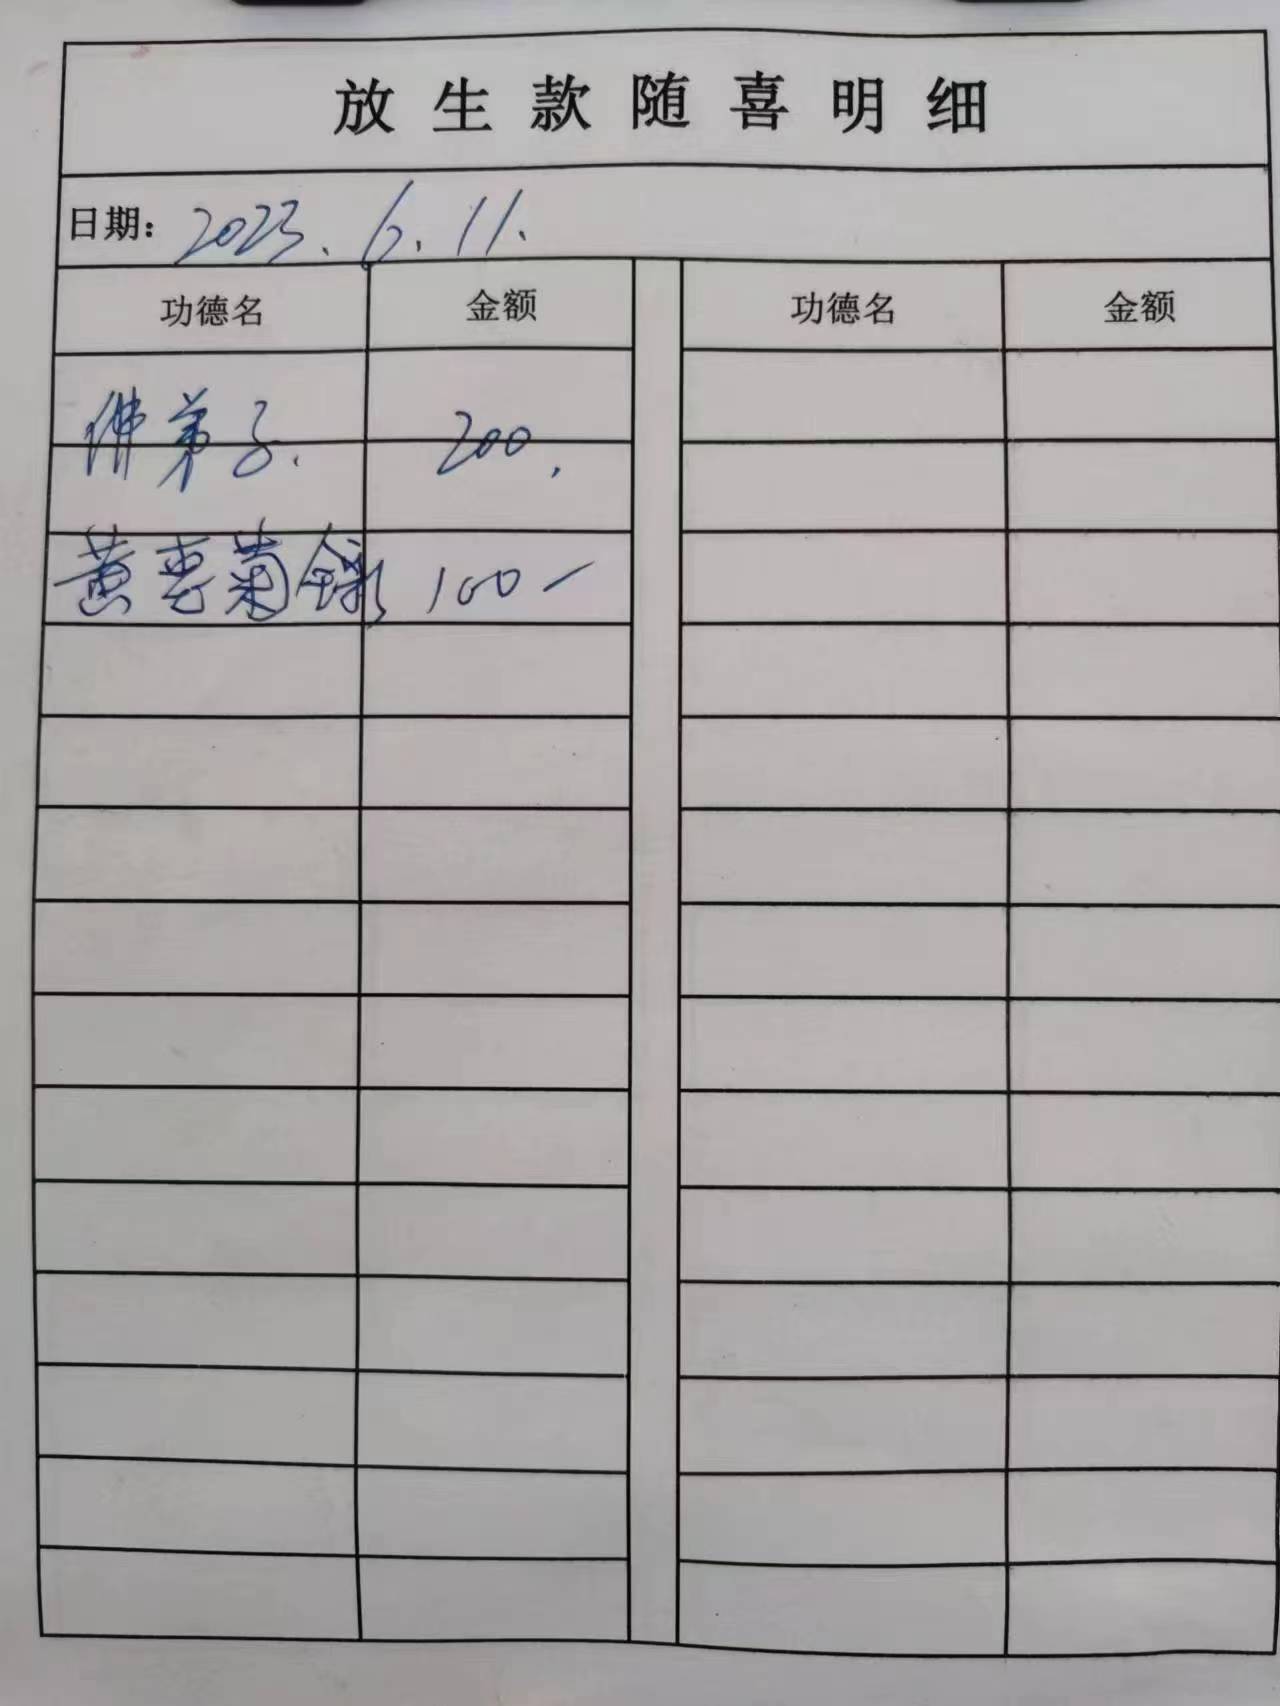 放生款随喜明细
日期: 2023.6.11.
功德名 金额 功德名 金额
佛弟子. 200.
黄惠菊 100-